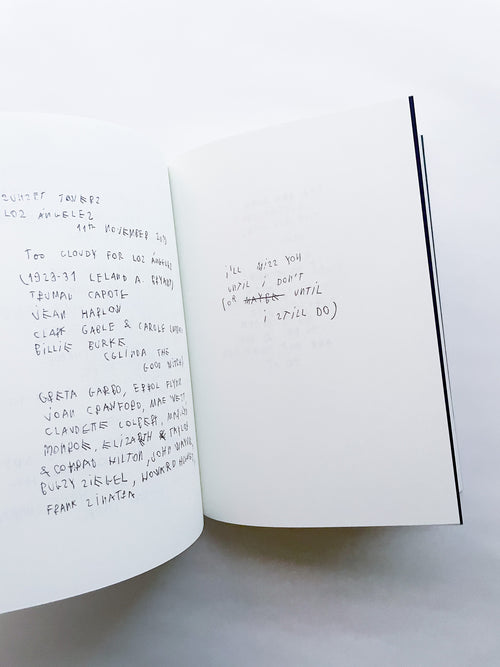 SUNSET TOWERS
LOS ÁNGELES
11TH NOVEMBER
TOO CLOUDY FOR LOS ÁNGELES
(1929-31 LELAND A. BRYANT)
TRUMAN CAPOTE
JEAN HARLOW
CLARK GABLE & CAROLE LOMBARD
BILLIE BURKE
(GLINDA THE
GOOD WITCH)
GRETA GARBO, ERROL FLYNN
JOAN CRAWFORD, MAE WEST,
CLAUDETTE COLBERT, MARILYN
MONROE, ELIZABETH TAYLOR
& CONRAD HILTON, JOHN WAYNE,
BUGZY SIEGEL, HOWARD HUGHES,
FRANK SINATRA
I'LL MISS YOU
UNTIL I DON'T
(OR MAYBE UNTIL
I STILL DO)